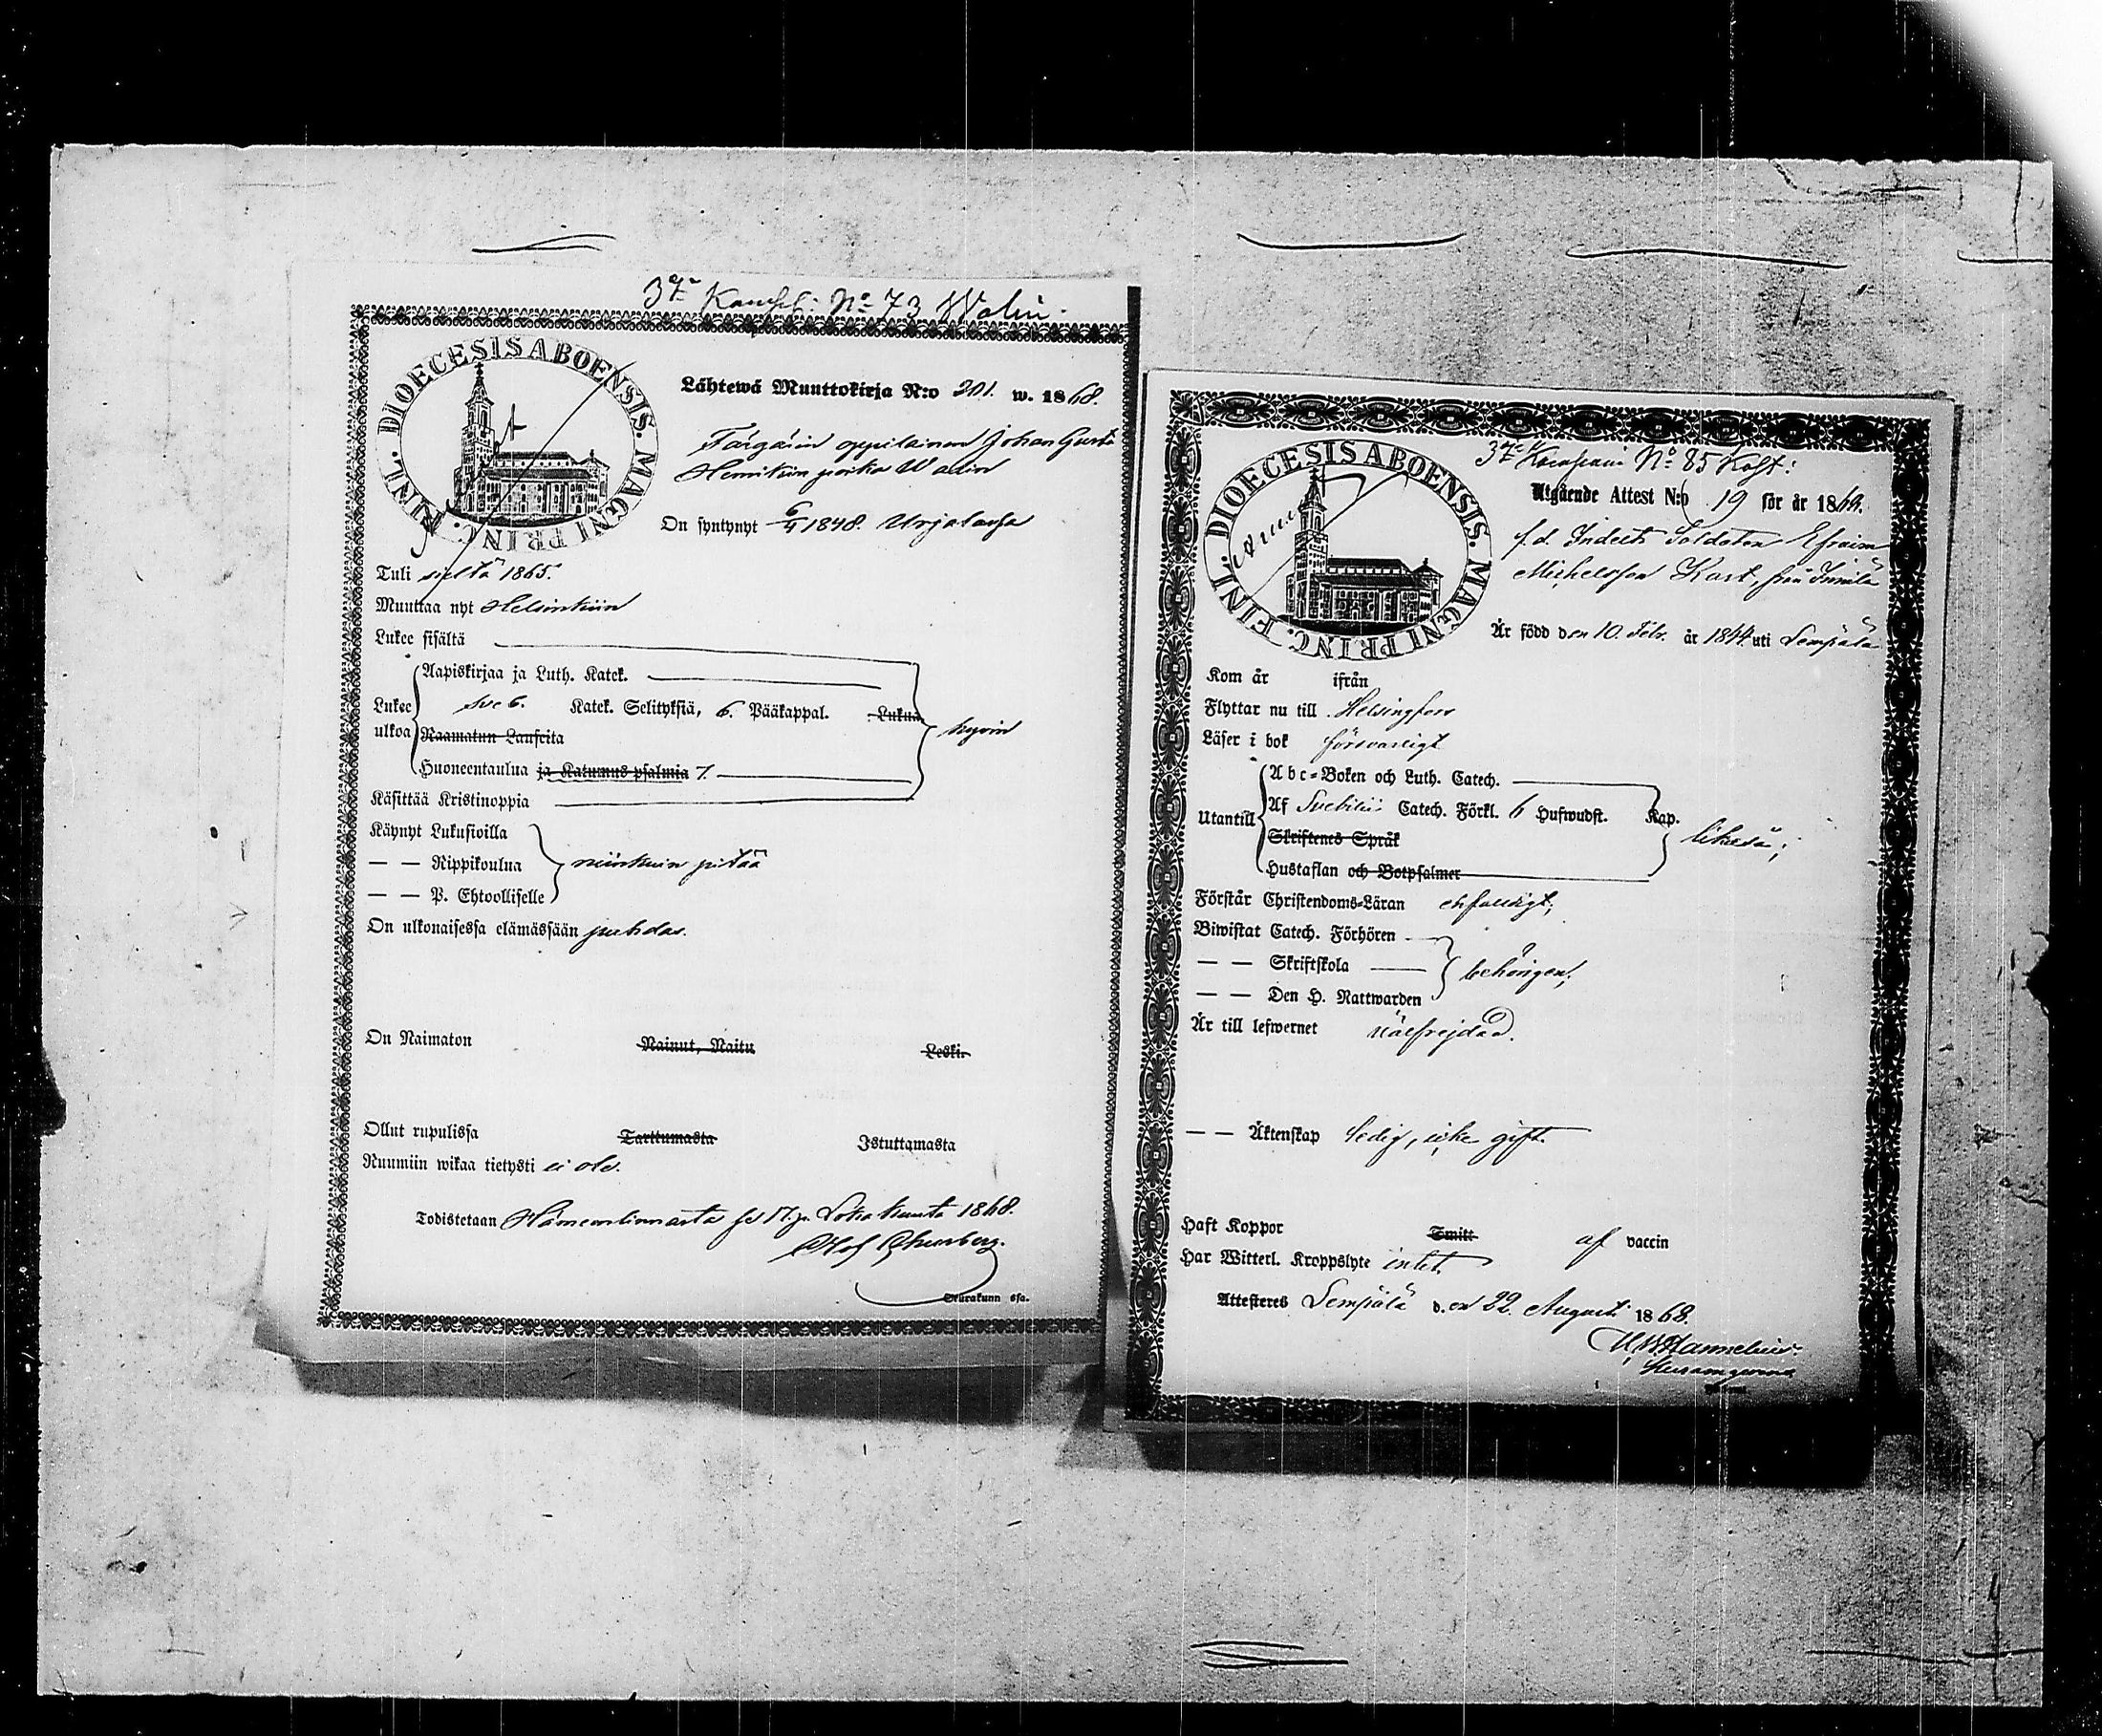 3:dje Komp: No 73 Walin.
DIOECESIS ABOENSIS. MAGNI PRINC. FINL.
Lähtewä Muuttokirja N:o 201. w. 1868.
Färgärin oppilainen Johan Gusta
Henrikin poika Walin
On syntynyt 6/4 1848. Urjalassa
Tuli sieltä 1865.
Muuttaa nyt Helsinkiin
Lukee sisältä
Aapiskirjaa ja Luth. Katek.
Lukee ulkoa Sveb. Katek. Selityksiä, 6. Pääkappal. Lukua
Raamatun Lauseita
hyvin
Huoneentaulua ja Katumus psalmia 7.
Käsittää Kristinoppia
Käynyt Lukusioilla
— — Rippikoulua
niinkuin pitää
— — P. Ehtoollisella
On ulkonaisessa elämässään puhdas.
On Naimaton Nainut, Naitu Leski.
Ollut rupulissa Tarttumasta Istuttamasta
Ruumiin wikaa tietysti ei ole.
Todistetaan Hämeenlinnasta 17 p. Lokakuuta 1868.
Seurakunn
3:dje Kompani No 85 Kast:
DIOECESIS ABOENSIS. MAGNI PRINC. FINL.
Utgående Attest N:o 19 för år 1868.
f.d. Indelts Soldaten Efraim
Michelsson Kast, från
Är född den 10. Febr. år 1844 uti Lempälä
Kom år ifrån
Flyttar nu till Helsingfors
Läser i bok försvarligt
Abc-Boken och Luth. Catech.
Utantill Af Svebilii Catech. Förkl. 6 Hufwudst. Kap.
Skriftenes Språk
likaså;
Hustaflan och Botpsalmer
Förstår Christendoms-Läran enfaldigt;
Biwistat Catech. Förhören
— — Skriftskola
behörigen;
— — Den H. Nattwarden
Är till lefwernet välfrejdad.
— — Äktenskap ledig, icke gift.
Haft Koppor Smitt af vaccin
Har Witterl. Kroppslyte intet.
Attesteres Lempälä den 22. Augusti 1868.